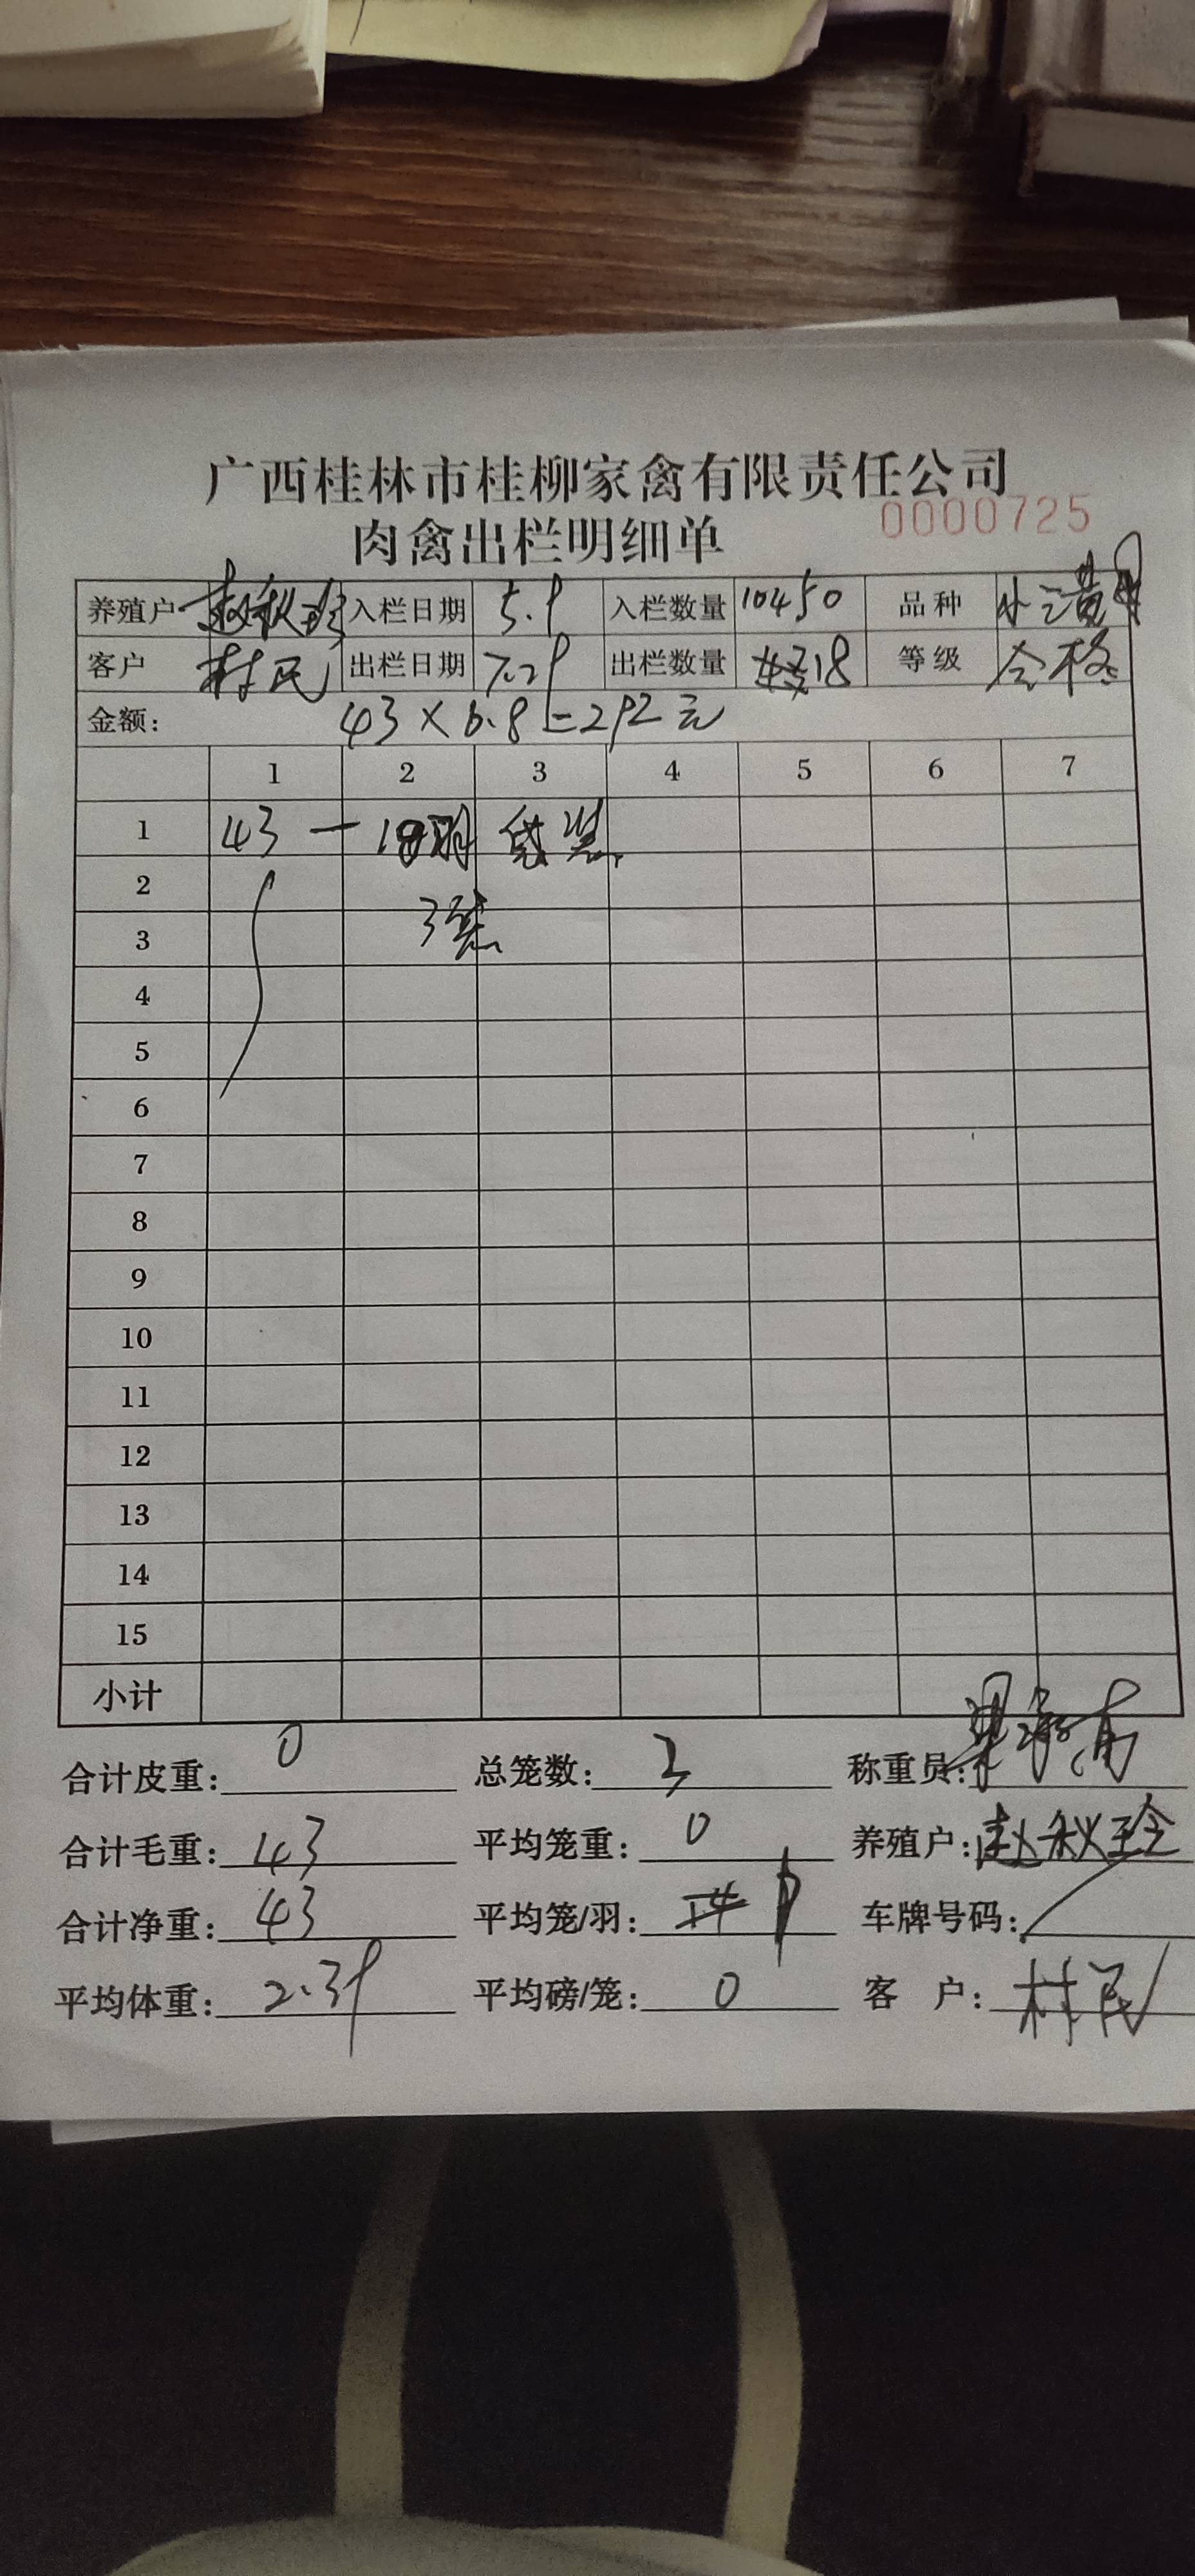 广西桂林市桂柳家禽有限责任公司
0000725
肉禽出栏明细单
养殖户 赵秋玲 入栏日期 5.9 入栏数量 10450 品种 小三黄
客户 村民 出栏日期 7.29 出栏数量 18 等级 合格
金额: 43×6.8=292元
1 2 3 4 5 6 7
1 43—18羽 袋装
2
3 3袋
4
5
6
7
8
9
10
11
12
13
14
15
小计
合计皮重: 0 总笼数: 3 称重员:
合计毛重: 43 平均笼重: 0 养殖户: 赵秋玲
合计净重: 43 平均笼/羽: 车牌号码: /
平均体重: 2.39 平均磅/笼: 0 客 户: 村民